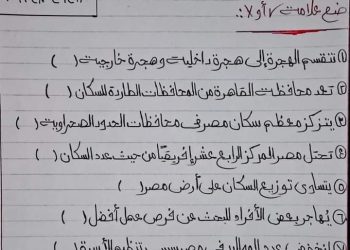 ضع علامت √ أو X :.
١) تنقسم الهجرة إلى هجرة داخليت وهجرة خارجيت ( )
٢) تعد محافظت القاهرة من المحافظات الطاردة للسكان ( )
٣) يتركز معظم سكان مصر فى محافظات الحدود الصحراويت ( )
٤) تحتل مصر المركز الرابع عشر إفريقيًا من حيث عدد السكان ( )
٥) يتساوى توزيع السكان على أرض مصر ( )
٦) يهاجر بعض الأفراد للبحث عن فرص عمل أفضل ( )
انخفض عدد المواليد فى مصر بسبب تنظيم الأسرة (